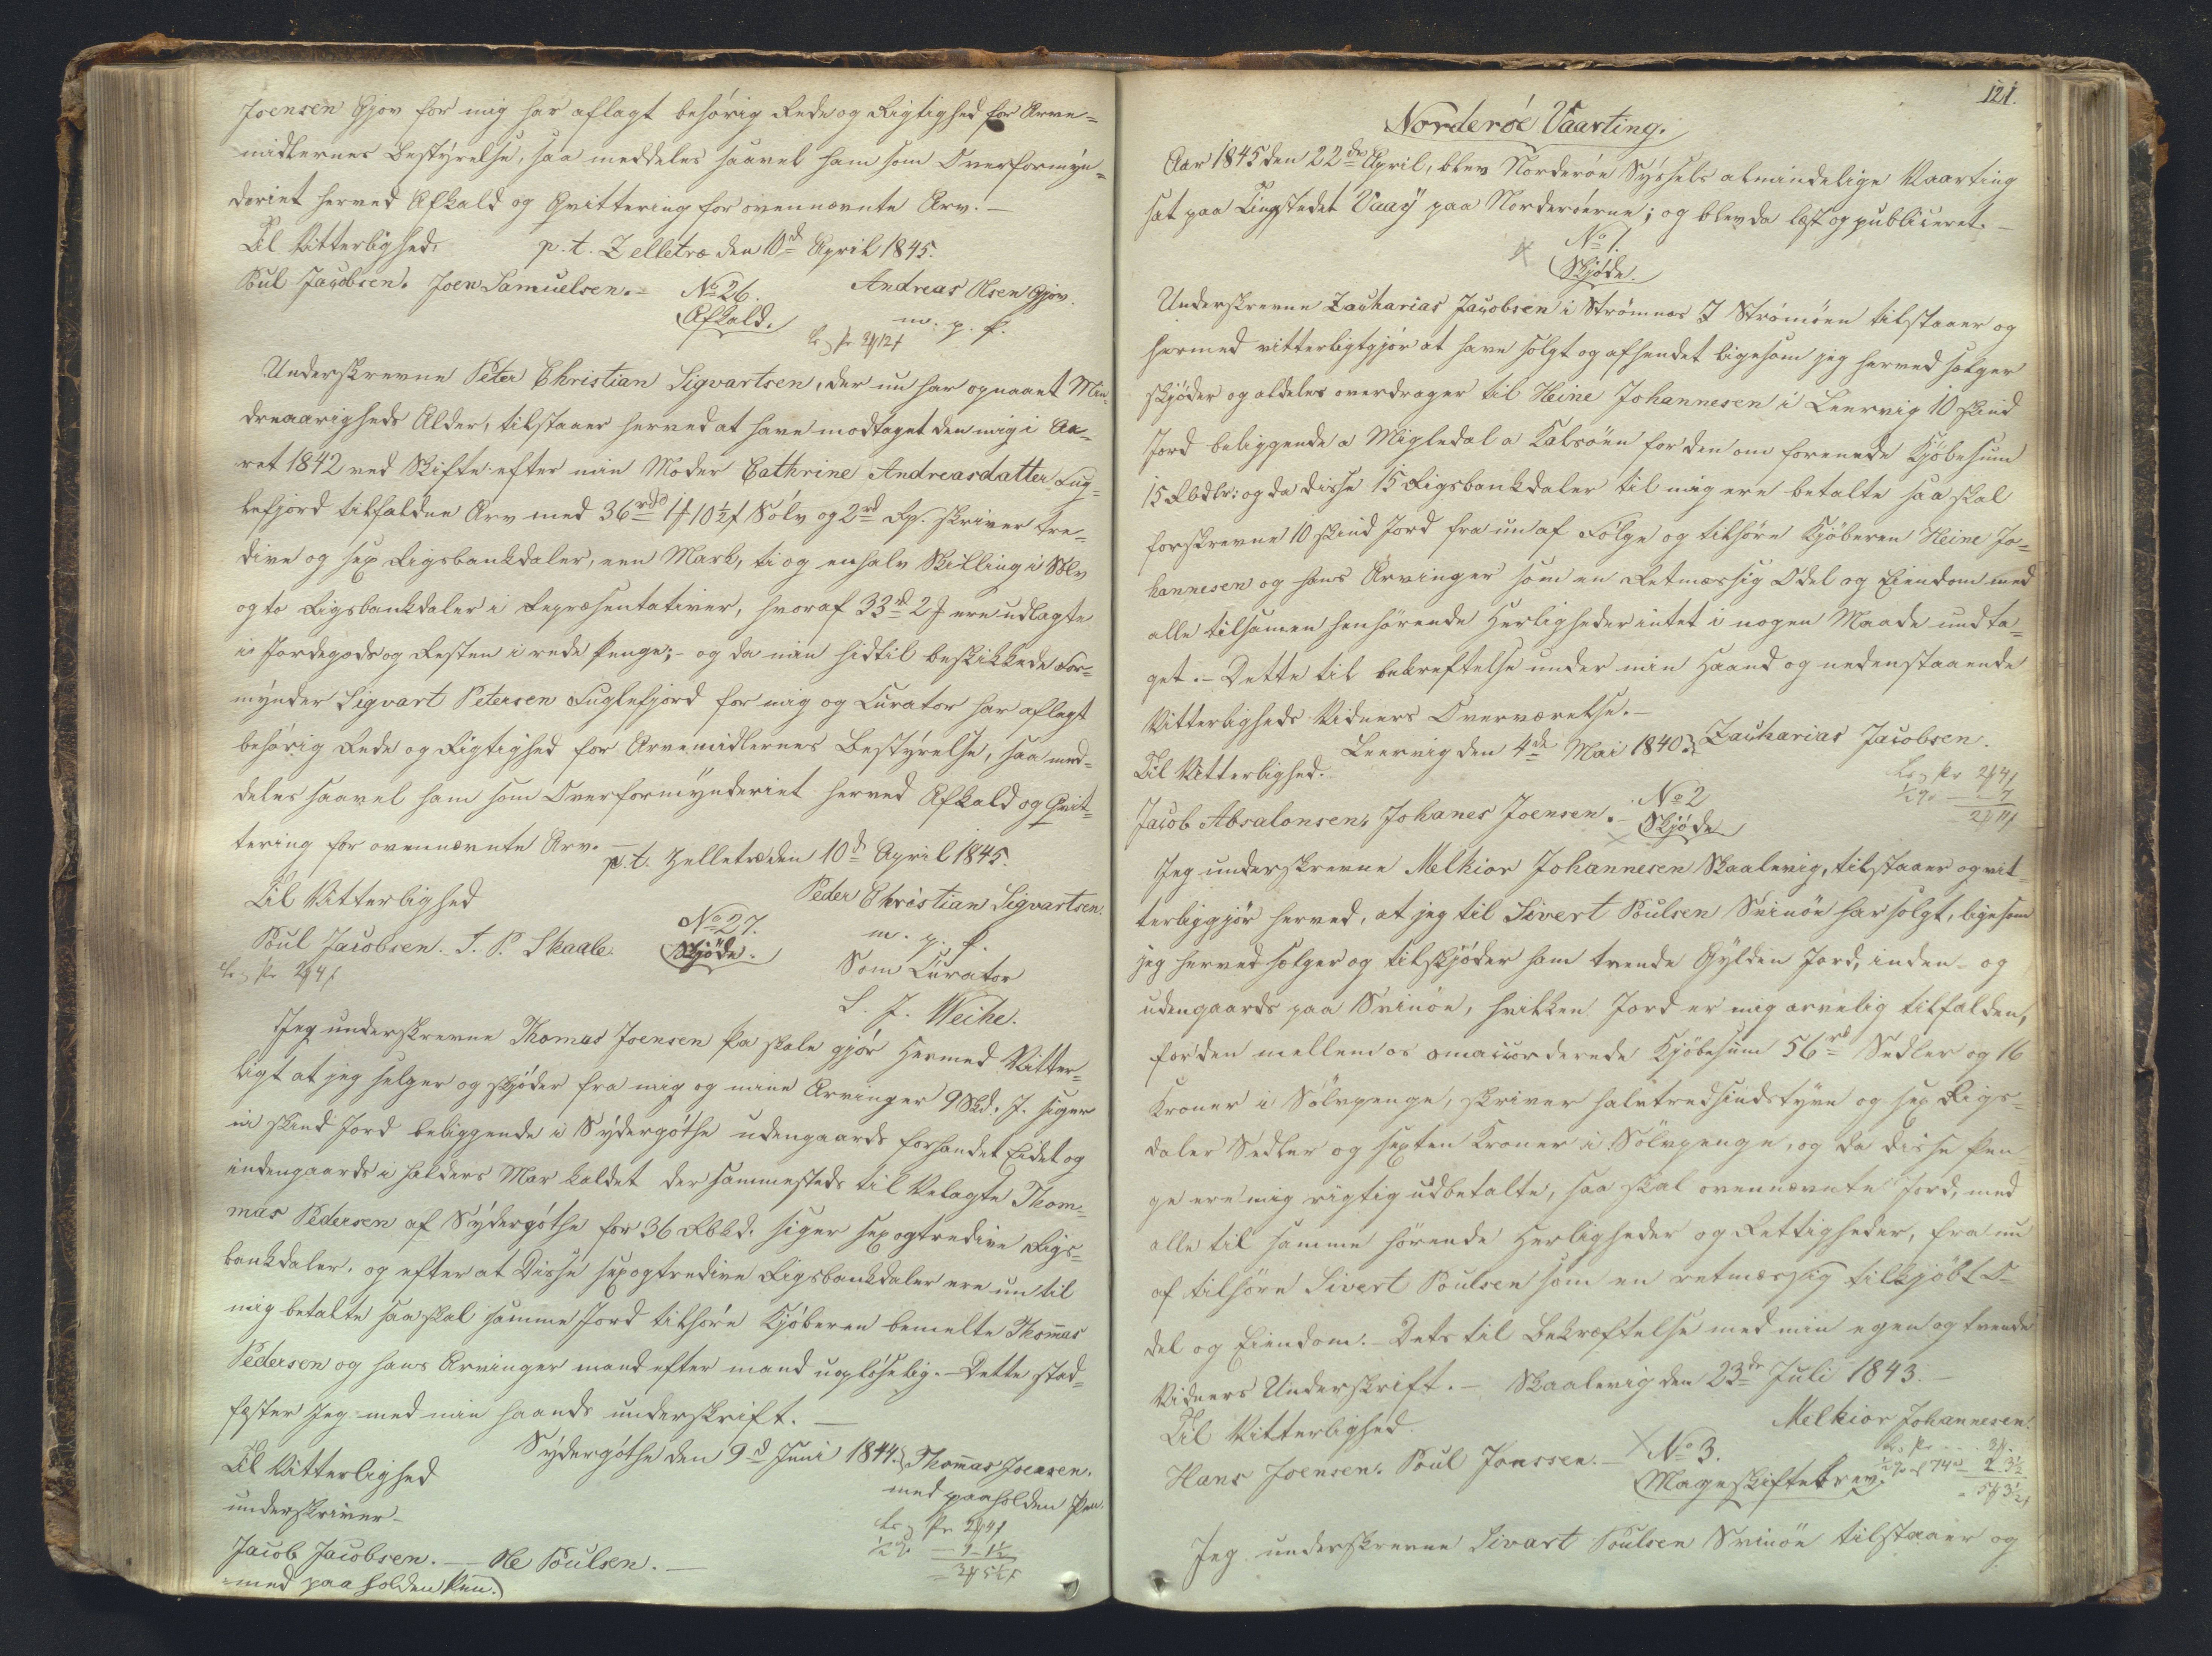 Joensen Gjov for mig har aflagt behörig Rede og Rigtighed for Arve=
midlernes Bestyrelse, saa meddeles saavel ham som Overformyn=
deriet herved Afkald og Qvittering for ovennævnte Arv. —
Til Vitterlighed. p. t. Zelletræ den 10d April 1845.
Poul Jacobsen. Joen Samuelsen. — Andreas Olsen Gjov.
No 26. m. p. P.
Afkald.
Underskrevne Peter Christian Sigvartsen, der nu har opnaaet Min=
dreaarigheds Alder, tilstaaer herved at have modtaget den mig i Aa=
ret 1842 ved Skifte efter min Moder Cathrine Andreasdatter Fug=
lefjord tilfaldne Arv med 36rd 1 10½ Sölv og 2rd Rp. skriver tre=
dive og sex Rigsbankdaler, een Mark, ti og en halv Skilling i Sölv
og to Rigsbankdaler i Repræsentativer, hvoraf 33rd 2 ere udlagte
i Jordegods og Resten i rede Penge; – og da min hidtil beskikkede For=
mynder Sigvart Petersen Fuglefjord for mig og Curator har aflagt
behörig Rede og Rigtighed for Arvemidlernes Bestyrelse, saa med=
deles saavel ham som Overformynderiet herved Afkald og Qvit=
tering for ovennævnte Arv. —
p. t. Zelletræ den 10d April 1845.
Til Vitterlighed Peder Christian Sigvartsen.
Poul Jacobsen. J. P. Skaale. No 27. m. p. P.
Skjöde. Som Curator
L. J. Weihe.
Jeg underskrevne Thomas Joensen paa skale gjör Hermed Vitter=
ligt at jeg selger og skjöder fra mig og mine Arvinger 9 Skd. J. siger
ni skind Jord beliggende i Sydergöthe udengaards forhandet Eidet og
indengaards i halders Mar kaldet der sammesteds til Velagte Thom=
mas Pedersen af Sydergöthe for 36 Rbkd. siger sex og tredive Rigs=
bankdaler. og efter at Disse sex og tredive Rigsbankdaler ere nu til
mig betalte saa skal samme Jord tilhöre Kjöberen bemelte Thommas
Pedersen og hans Arvinger mand efter mand uoplöselig. — Dette stad=
fæster Jeg med min haands underskrift. —
Sydergöthe den 9d Juni 1844. Thommas Joensen.
Til Vitterlighed med paaholden Pen.
underskriver –
Jacob Jacobsen. — Ole Poulsen. —
med paaholden Pen.
121.
Norderöe Vaarting.
Aar 1845 den 22de April, blev Norderöe Syssels almindelige Vaarting
sat paa Tingstedet Vaay paa Norderöerne; og blev da læst og publiceret. —
No 1.
Skjöde.
Underskrevne Zacharias Jacobsen i Strömnæs I Strömöen tilstaaer og
hermed vitterligtgjör at have solgt og afhendet ligesom jeg herved sælger
skjöder og aldeles overdrager til Heine Johannesen i Leervig 10 skind
Jord beliggende a Migledal a Kalsöen for den om forenede Kjöbesum
15 Rbdlr: og da disse 15 Rigsbankdaler til mig ere betalte saa skal
forskrevne 10 skind Jord fra nu af Fölge og tilhöre Kjöberen Heine Jo=
hannesen og hans Arvinger som en Retmæssig Odel og Eiendom med
alle tilsamen henhörende Herligheder intet i nogen Maade undta=
get. — Dette til bekreftelse under min Haand og nedenstaaende
Vitterligheds Vidners Overværelse. —
Leervig den 4de Mai 1840. Zacharias Jacobsen.
Til Vitterlighed.
Jacob Absalonsen, Johanes Joensen. — No 2
Skjöde
Jeg underskrevne Melkior Johannesen Skaalevig, tilstaaer og vit=
terliggjör herved, at jeg til Sivert Poulsen Svinöe har solgt, ligesom
jeg herved sælger og tilskjöder ham tvende Gylden Jord, inden- og
udengaards paa Svinöe, hvilken Jord er mig arvelig tilfalden,
for den mellem os omaccorderede Kjöbesum 56rd Sedler og 16
Kroner i Sölvpenge, skriver halvtredsindstyve og sex Rigs=
daler Sedler og sexten Kroner i Sölvpenge, og da disse Pen
ge ere mig rigtig udbetalte, saa skal ovennævnte Jord, med
alle til samme hörende Herligheder og Rettigheder, fra nu
af tilhöre Sivert Poulsen som en retmæssig tilkjöbt O=
del og Eiendom. — Dets til Bekræftelse med min egen og tvende
Vidners Underskrift. — Skaalevig den 23de Juli 1843. —
Til Vitterlighed. Melkior Johannesen.
Hans Joensen. Poul Jonssen. — No 3.
Mageskiftebrev.
Jeg underskrevne Sivart Poulsen Svinöe tilstaaer og